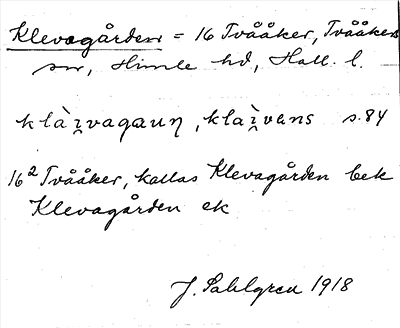 Klevagården = 16 Tvååker, Tvååkers
sn, Himle hd, Hall. l.
klàı̯vagaun, klàı̯vans s. 84
16² Tvååker, kallas Klevagården bek
Klevagården ek
J. Sahlgren 1918